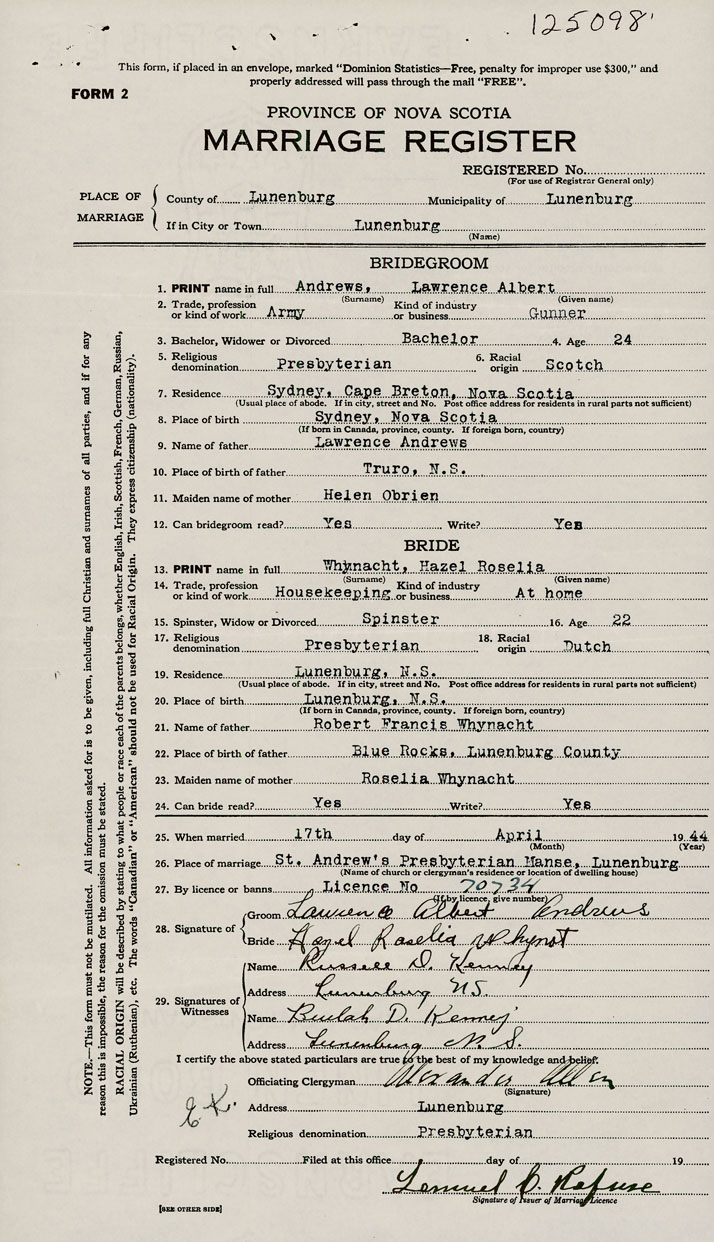 125098
This form, if placed in an envelope, marked "Dominion Statistics—Free, penalty for improper use $300," and
properly addressed will pass through the mail "FREE".
FORM 2
PROVINCE OF NOVA SCOTIA
MARRIAGE REGISTER
REGISTERED No.
(For use of Registrar General only)
PLACE OF MARRIAGE
County of Lunenburg Municipality of Lunenburg
If in City or Town Lunenburg
(Name)
BRIDEGROOM
1. PRINT name in full Andrews, Lawrence Albert
(Surname) (Given name)
2. Trade, profession or kind of work Army Kind of industry or business Gunner
3. Bachelor, Widower or Divorced Bachelor 4. Age 24
5. Religious denomination Presbyterian 6. Racial origin Scotch
7. Residence Sydney, Cape Breton, Nova Scotia
(Usual place of abode. If in city, street and No. Post office address for residents in rural parts not sufficient)
8. Place of birth Sydney, Nova Scotia
(If born in Canada, province, county. If foreign born, country)
9. Name of father Lawrence Andrews
10. Place of birth of father Truro, N.S.
11. Maiden name of mother Helen Obrien
12. Can bridegroom read? Yes Write? Yes
BRIDE
13. PRINT name in full Whynacht, Hazel Roselia
(Surname) (Given name)
14. Trade, profession or kind of work Housekeeping Kind of industry or business At home
15. Spinster, Widow or Divorced Spinster 16. Age 22
17. Religious denomination Presbyterian 18. Racial origin Dutch
19. Residence Lunenburg, N.S.
(Usual place of abode. If in city, street and No. Post office address for residents in rural parts not sufficient)
20. Place of birth Lunenburg, N.S.
(If born in Canada, province, county. If foreign born, country)
21. Name of father Robert Francis Whynacht
22. Place of birth of father Blue Rocks, Lunenburg County
23. Maiden name of mother Roselia Whynacht
24. Can bride read? Yes Write? Yes
25. When married 17th day of April 1944
(Month) (Year)
26. Place of marriage St. Andrew's Presbyterian Manse, Lunenburg
(Name of church or clergyman's residence or location of dwelling house)
27. By licence or banns Licence No 70734
(If by licence, give number)
28. Signature of
Groom Lawrence Albert Andrews
Bride Hazel Roselia Whynot
29. Signatures of Witnesses
Name Russell D. Kenney
Address Lunenburg NS.
Name Beulah D. Kenney
Address Lunenburg N.S.
I certify the above stated particulars are true to the best of my knowledge and belief.
Officiating Clergyman Alexander Allen
(Signature)
Address Lunenburg
Religious denomination Presbyterian
Registered No. Filed at this office day of 19
Lemuel C. Rafuse
Signature of Issuer of Marriage Licence
[SEE OTHER SIDE]
NOTE.—This form must not be mutilated. All information asked for is to be given, including full Christian and surnames of all parties, and if for any
reason this is impossible, the reason for the omission must be stated.
RACIAL ORIGIN will be described by stating to what people or race each of the parents belongs, whether English, Irish, Scottish, French, German, Russian,
Ukrainian (Ruthenian), etc. The words "Canadian" or "American" should not be used for Racial Origin. They express citizenship (nationality).